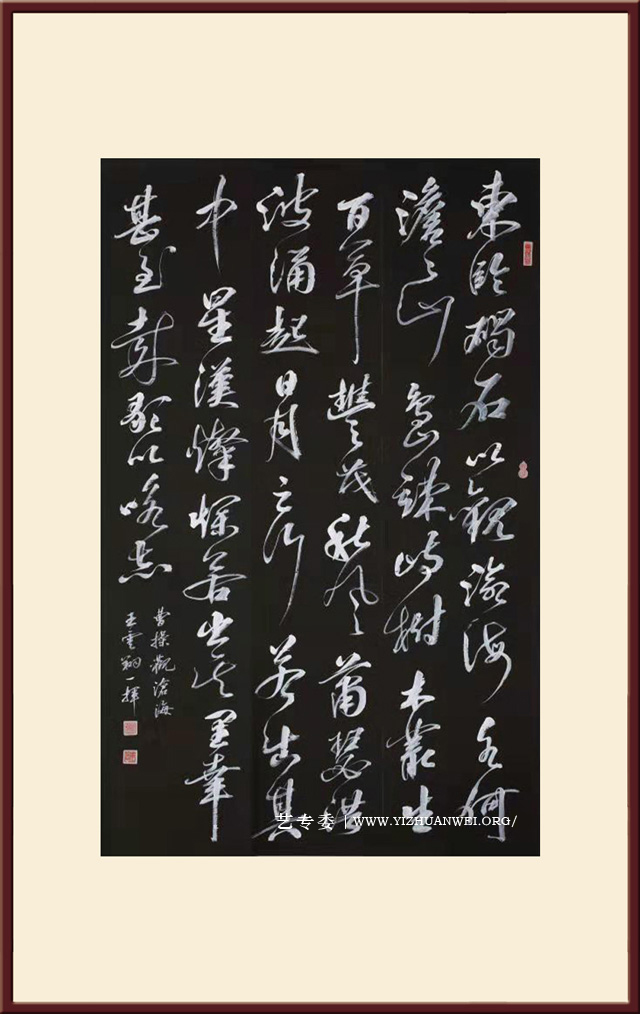 東臨碣石以觀滄海水何
澹々山島竦峙樹木叢生
百草豐茂秋風蕭瑟洪
波涌起日月之行若出其
中星漢燦爛若出其里幸
甚至哉歌以咏志
曹操觀滄海
王雲翔一揮
艺专委 | WWW.YIZHUANWEI.ORG/